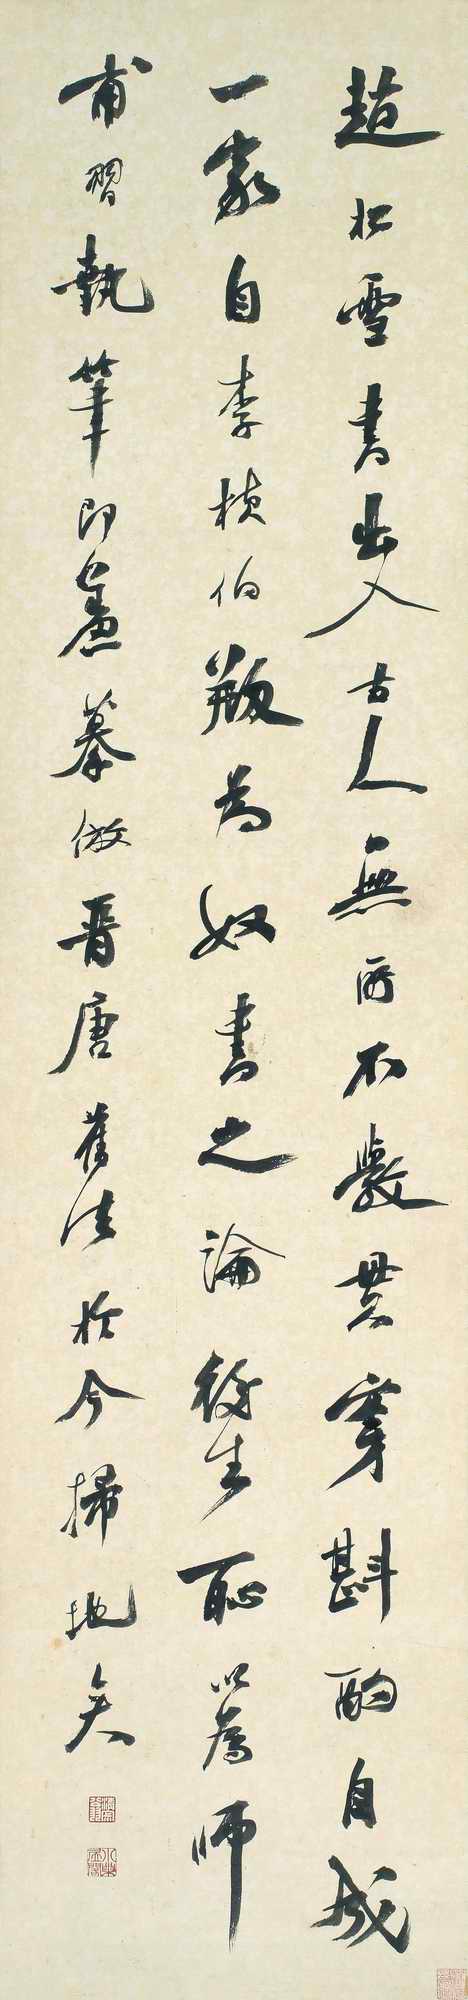 趙松雪書出入古人無所不斆貫穿斟酌自成
一家自李楨伯叛為奴書之論後生恥以為師
甫習執筆即羞摹倣晉唐舊法於今掃地矣